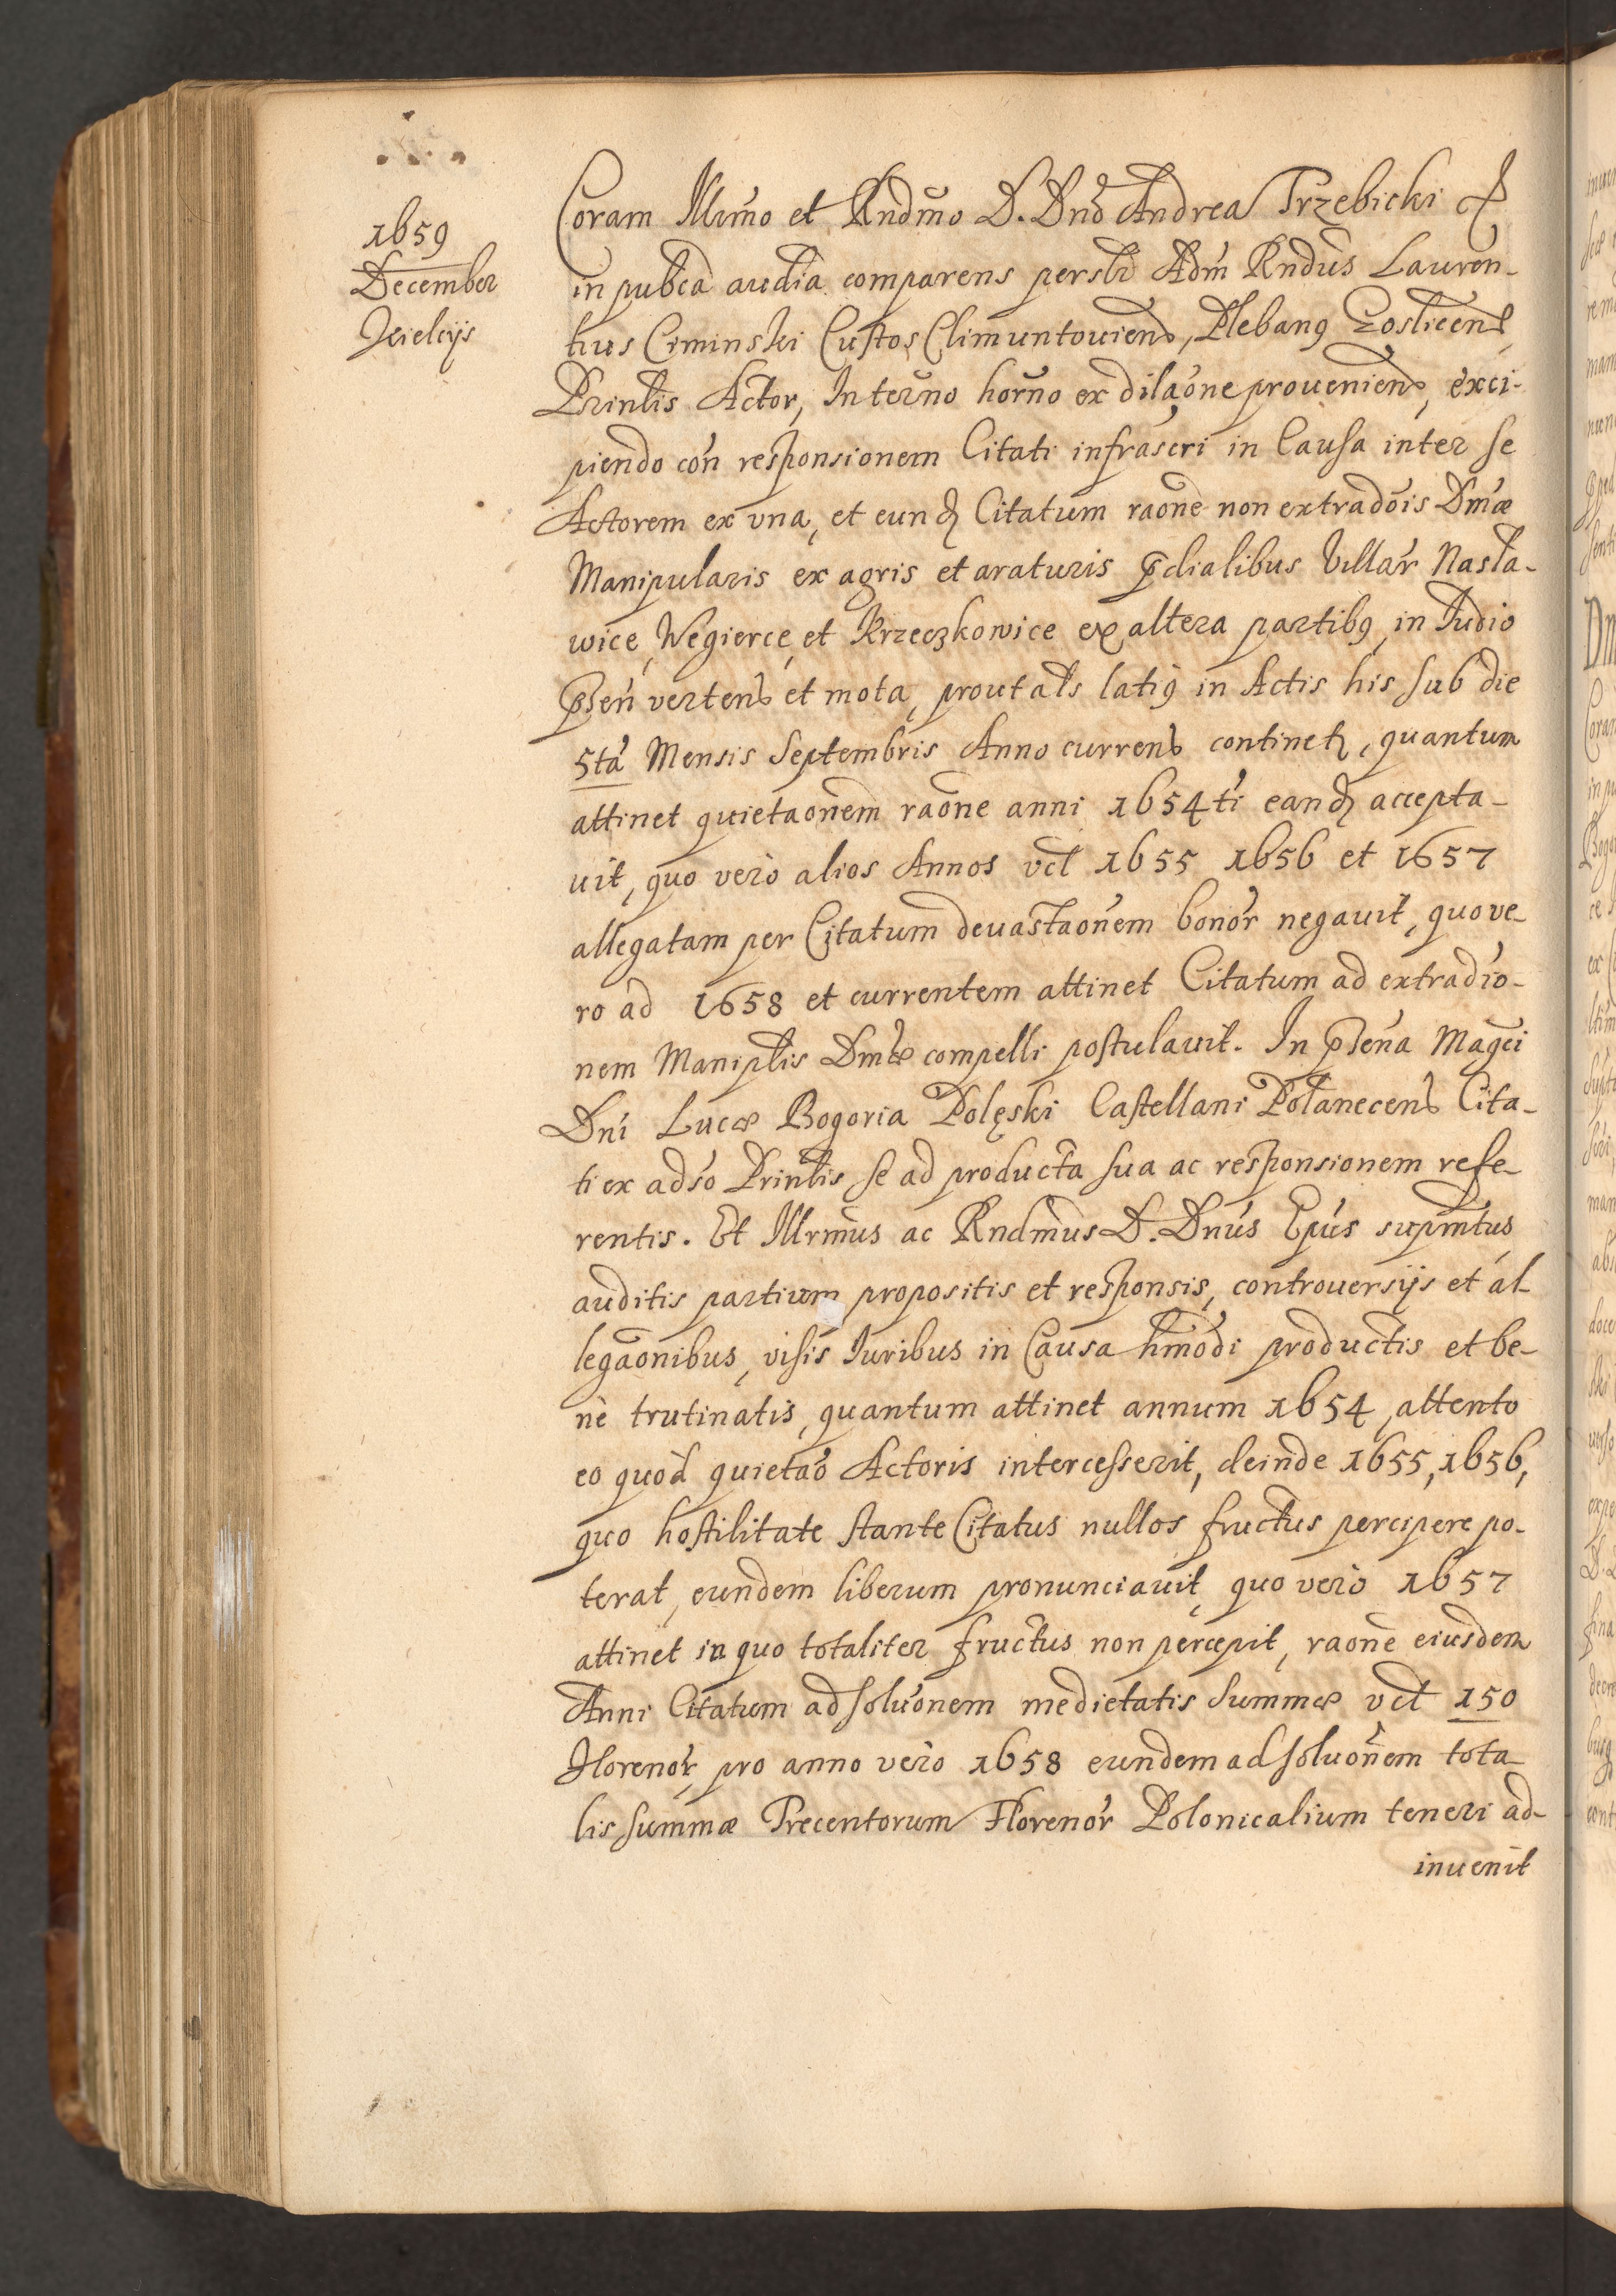 1659
December
Kielcijs
Coram Illmo et Rndmo D. Dnō Andrea Trzebicki &
in pubca audia comparens persłr Adm Rndus Lauren-
tius Ciminski Custos Climuntouiens, Plebanꝯ Goslicens
Prinlis Actor, In terno horno ex dilaone proueniens, exci-
piendo con responsionem Citati infrascri in Causa inter se
Actorem ex vna, et eundꝫ Citatum raone non extradois Dmæ
Manipularis ex agris et araturis p̄dialibus Villar Nasla-
wice, Wegierce, et Krzeczkowice ex altera partibꝯ, in Iudio
p̄sen vertens et mota, prout als latiꝯ in Actis his sub die
5ta Mensis Septembris Anno currens continetꝫ, quantum
attinet quietaonem raone anni 1654ti eandꝫ accepta-
uit, quo vero alios Annos vcl 1655 1656 et 1657
allegatam per Citatum deuastaonem bonor negauit, quo ve-
ro ad 1658 et currentem attinet Citatum ad extradio-
nem Maniplis Dmæ compelli postulauit. In p̄sena Magci
Dni Lucæ Bogoria Polęski Castellani Polanecens Cita-
ti ex adso Prinlis se ad producta sua ac responsionem refe-
rentis. Et Illrmus ac Rndmus D. Dnus Epus supmtus
auditis partium propositis et responsis, controuersijs et al-
legaonibus, visis Iuribus in Causa hmodi productis et be-
ne trutinatis, quantum attinet annum 1654, attento
eo quod quietao Actoris intercesserit, deinde 1655, 1656,
quo hostilitate stante Citatus nullos fructus percipere po-
terat, eundem liberum pronunciauit, quo vero 1657
attinet in quo totaliter fructus non percepit, raone eiusdem
Anni Citatum ad soluonem medietatis Summæ vcl 150
Florenor, pro anno vero 1658 eundem ad soluonem tota-
lis summæ Trecentorum Florenor Polonicalium teneri ad-
inuenit